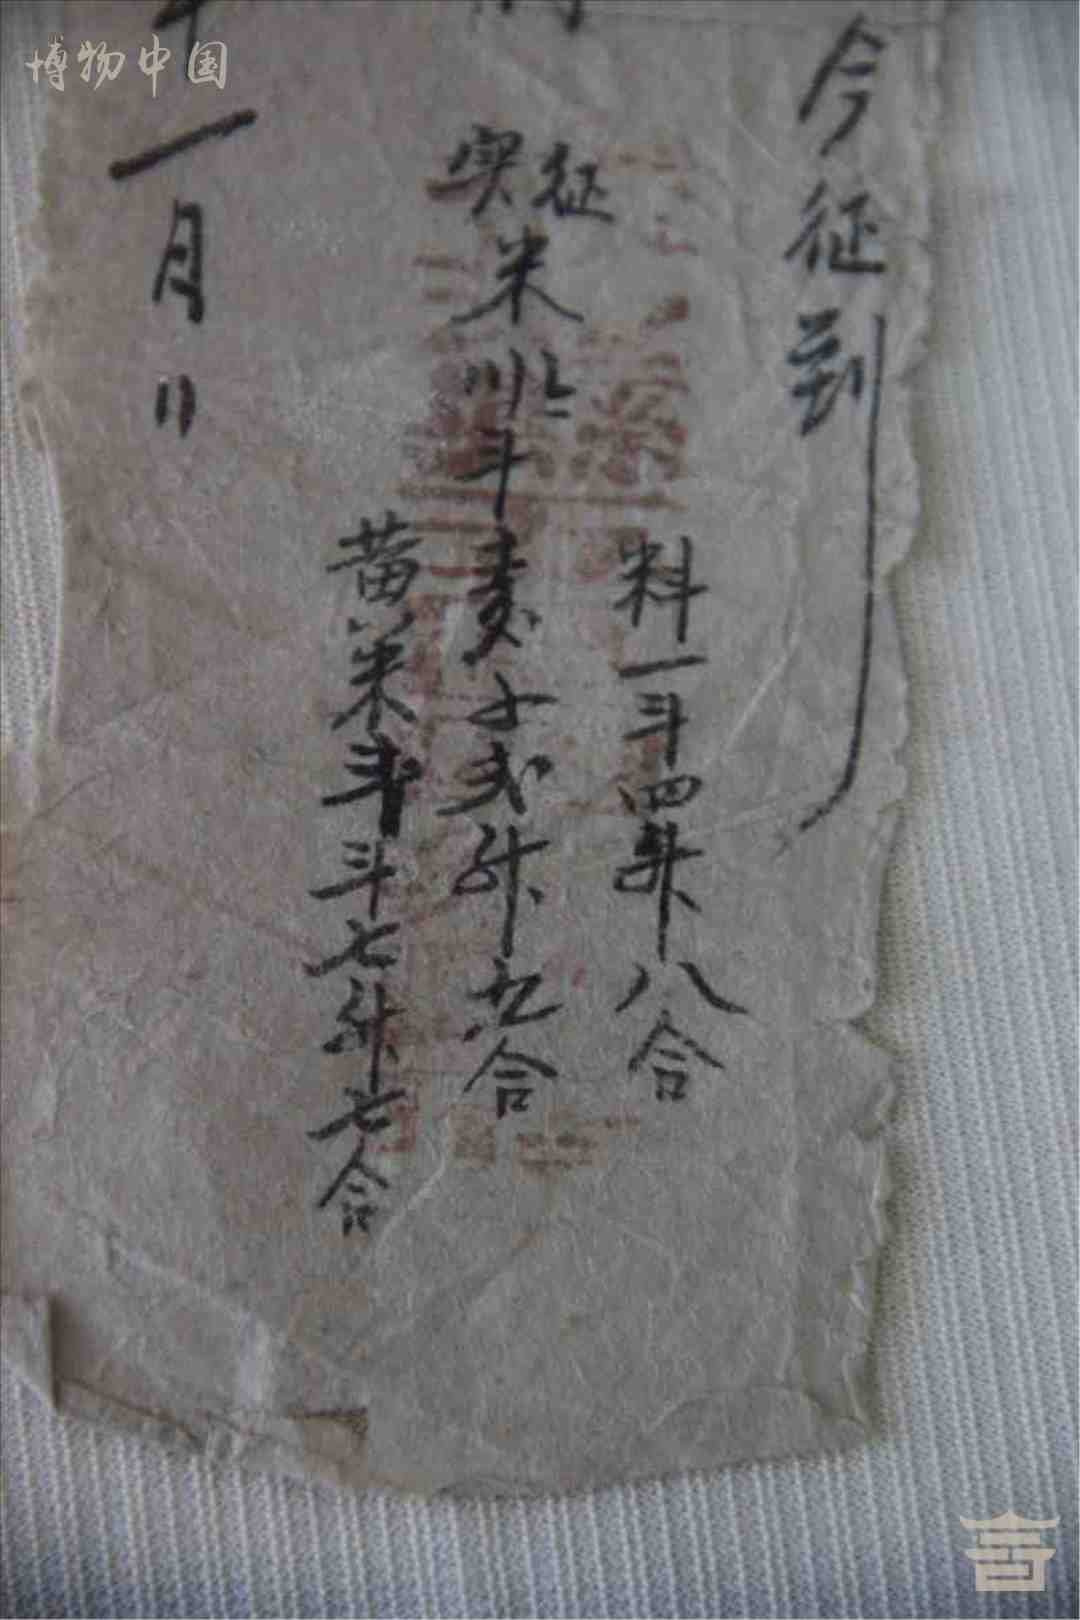 博物中国
今征到
料一斗四升八合
实征米斗麦子弍升九合
黄米斗七升七合
一月